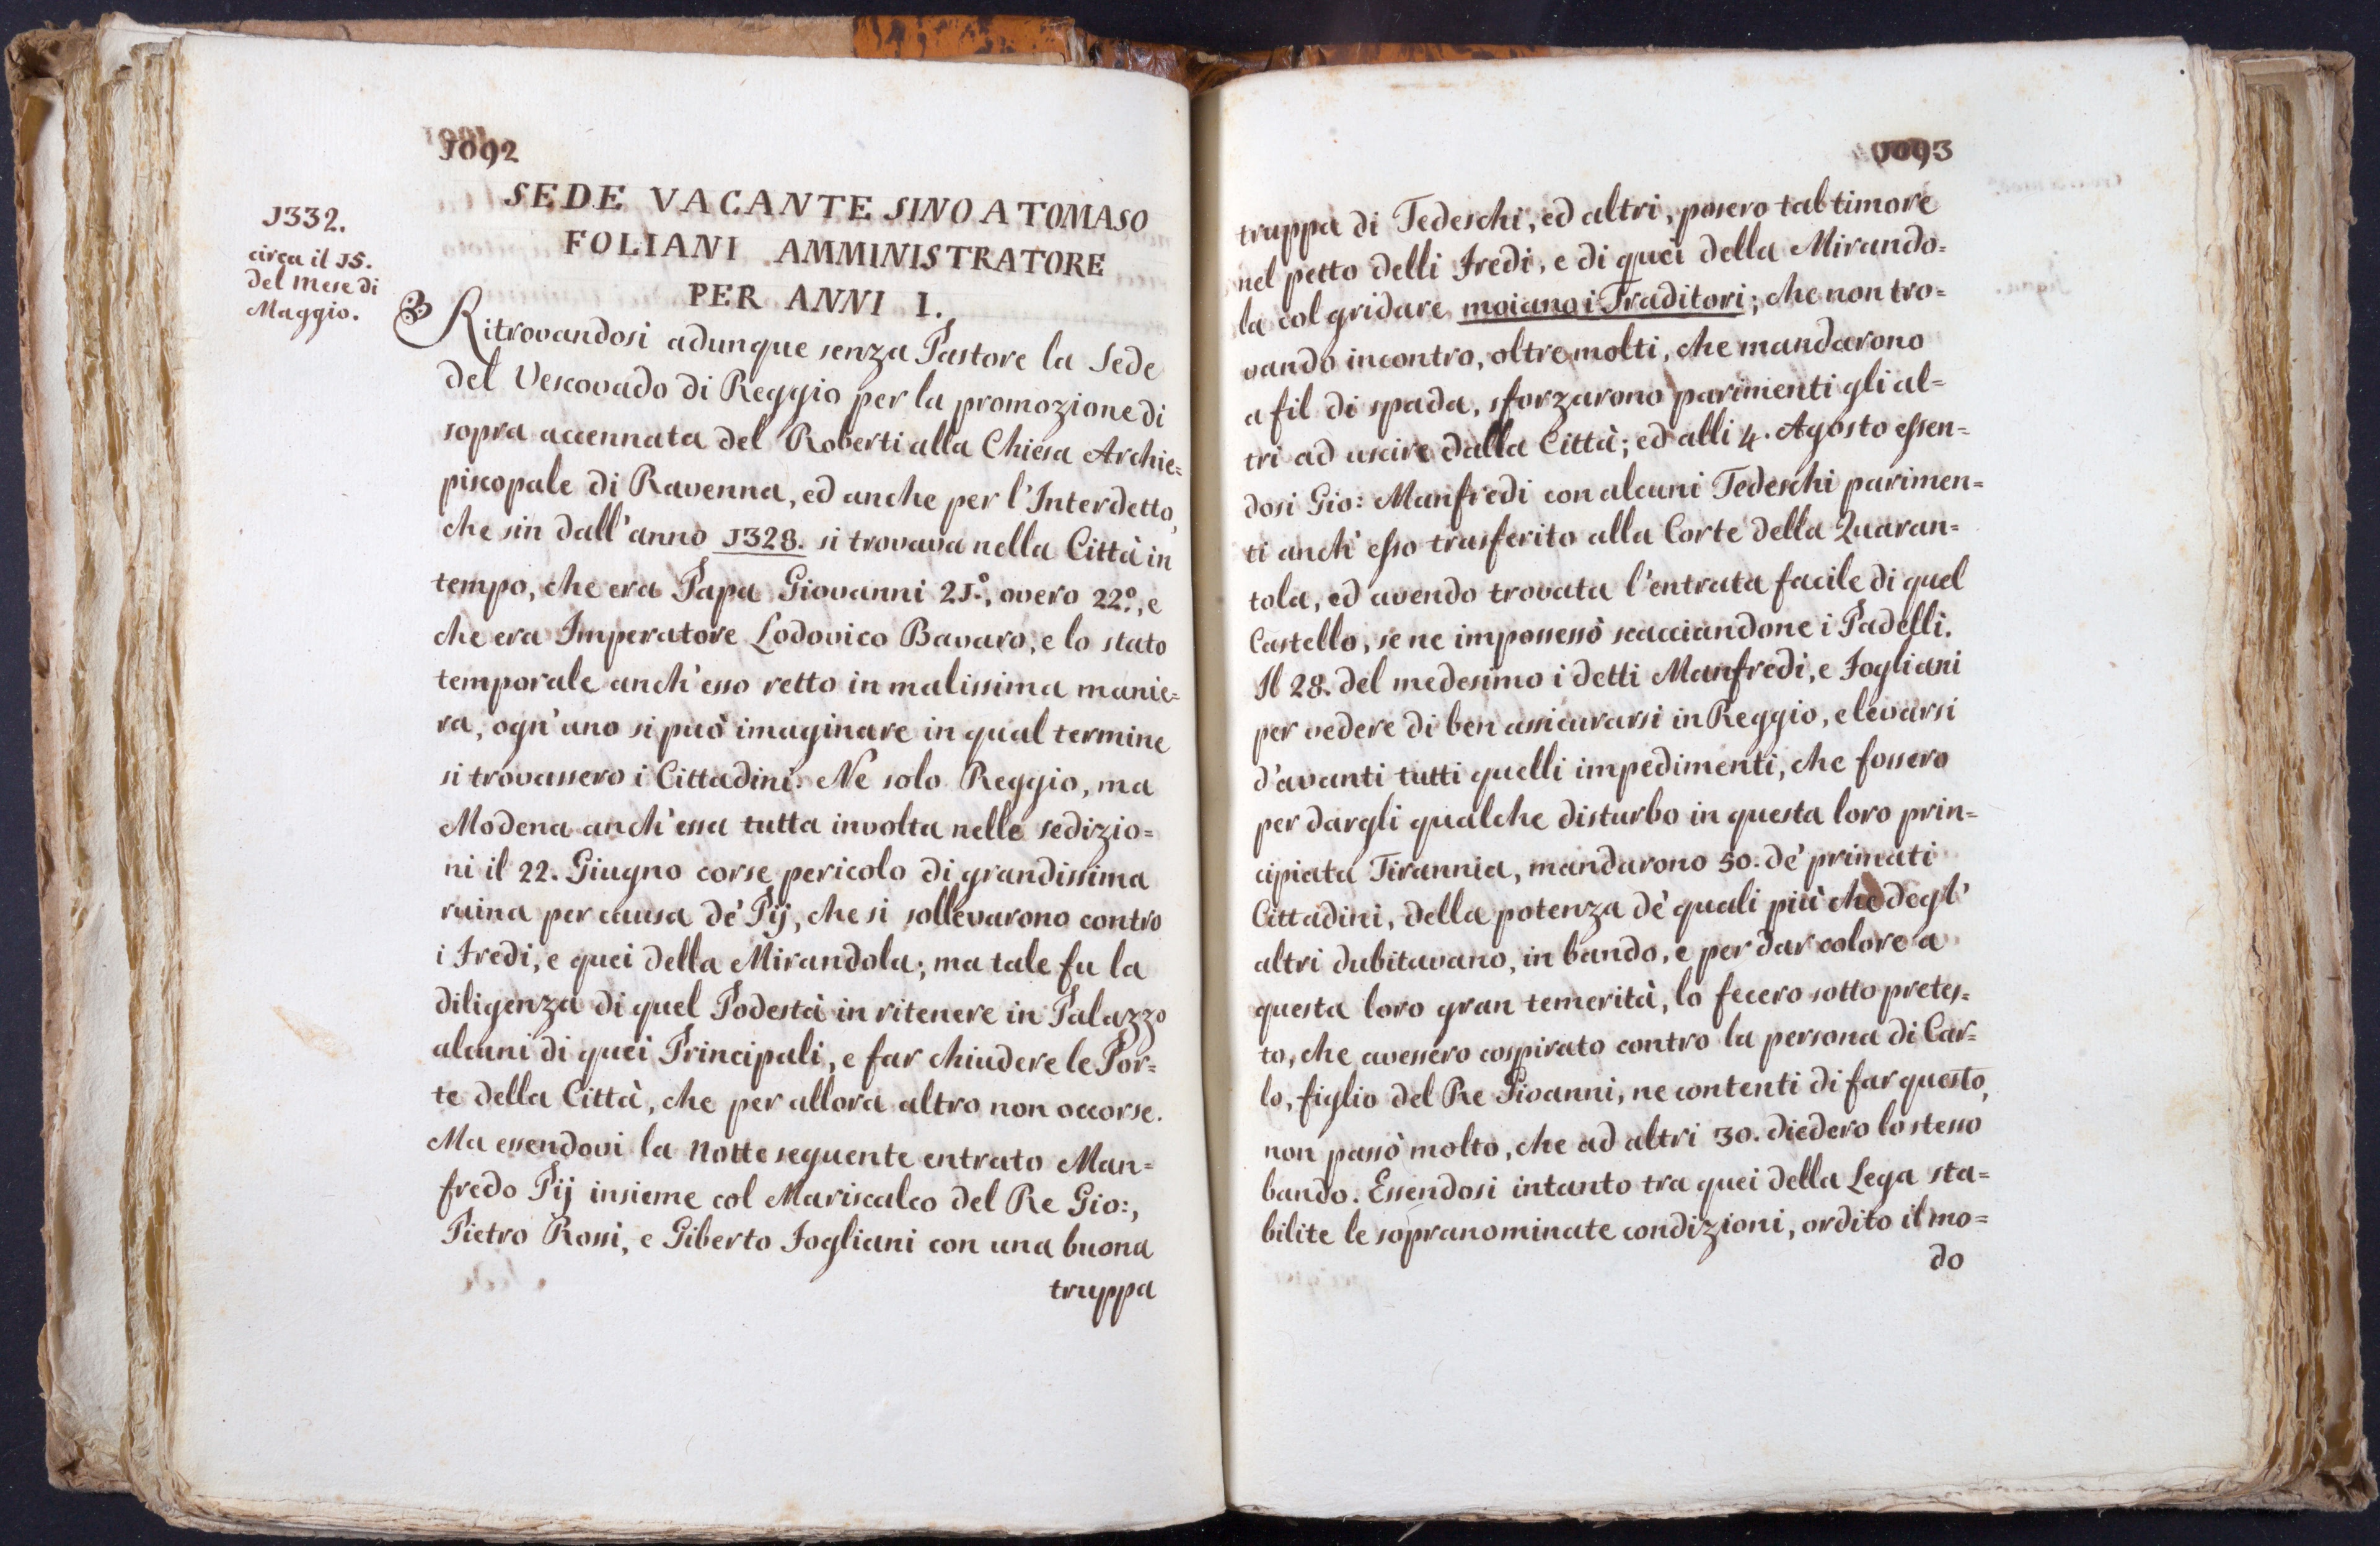 1092
1332.
circa il 15.
del Mese di
Maggio.
SEDE VACANTE SINO A TOMASO
FOLIANI AMMINISTRATORE
PER ANNI I.
Ritrovandosi adunque senza Pastore la Sede
del Vescovado di Reggio per la promozione di
sopra accennata del Roberti alla Chiesa Archie=
piscopale di Ravenna, ed anche per l'Interdetto,
che sin dall'anno 1328. si trovava nella Città in
tempo, che era Papa Giovanni 21.º, overo 22.º, e
che era Imperatore Lodovico Bavaro, e lo stato
temporale anch'esso retto in malissima manie=
ra, ogn'uno si può imaginare in qual termine
si trovassero i Cittadini. Ne solo Reggio, ma
Modena anch'essa tutta involta nelle sedizio=
ni il 22. Giugno corse pericolo di grandissima
ruina per causa de' Pij, che si sollevarono contro
i Fredi, e quei della Mirandola; ma tale fu la
diligenza di quel Podestà in ritenere in Palazzo
alcuni di quei Principali, e far chiudere le Por=
te della Città, che per allora altro non occorse.
Ma essendovi la Notte seguente entrato Man=
fredo Pij insieme col Mariscalco del Re Gio:,
Pietro Rossi, e Giberto Fogliani con una buona
truppa
1093
truppa di Tedeschi, ed altri, posero tal timore
nel petto delli Fredi, e di quei della Mirando=
la col gridare moiano i Traditori; che non tro=
vando incontro, oltre molti, che mandarono
a fil di spada, sforzarono parimenti gli al=
tri ad uscire dalla Città; ed alli 4. Agosto essen=
dosi Gio: Manfredi con alcuni Tedeschi parimen=
ti anch'esso trasferito alla Corte della Quaran=
tola, ed avendo trovata l'entrata facile di quel
Castello, se ne impossessò scacciandone i Padelli.
Il 28. del medesimo i detti Manfredi, e Fogliani
per vedere di ben assicurarsi in Reggio, e levarsi
d'avanti tutti quelli impedimenti, che fossero
per dargli qualche disturbo in questa loro prin=
cipiata Tirannia, mandarono 50. de' primati
Cittadini, della potenza de' quali più che degl'
altri dubitavano, in bando, e per dar colore a
questa loro gran temerità, lo fecero sotto pretes=
to, che avessero cospirato contro la persona di Car=
lo, figlio del Re Gioanni, ne contenti di far questo,
non passò molto, che ad altri 30. diedero lo stesso
bando. Essendosi intanto tra quei della Lega sta=
bilite le sopranominate condizioni, ordito il mo=
do